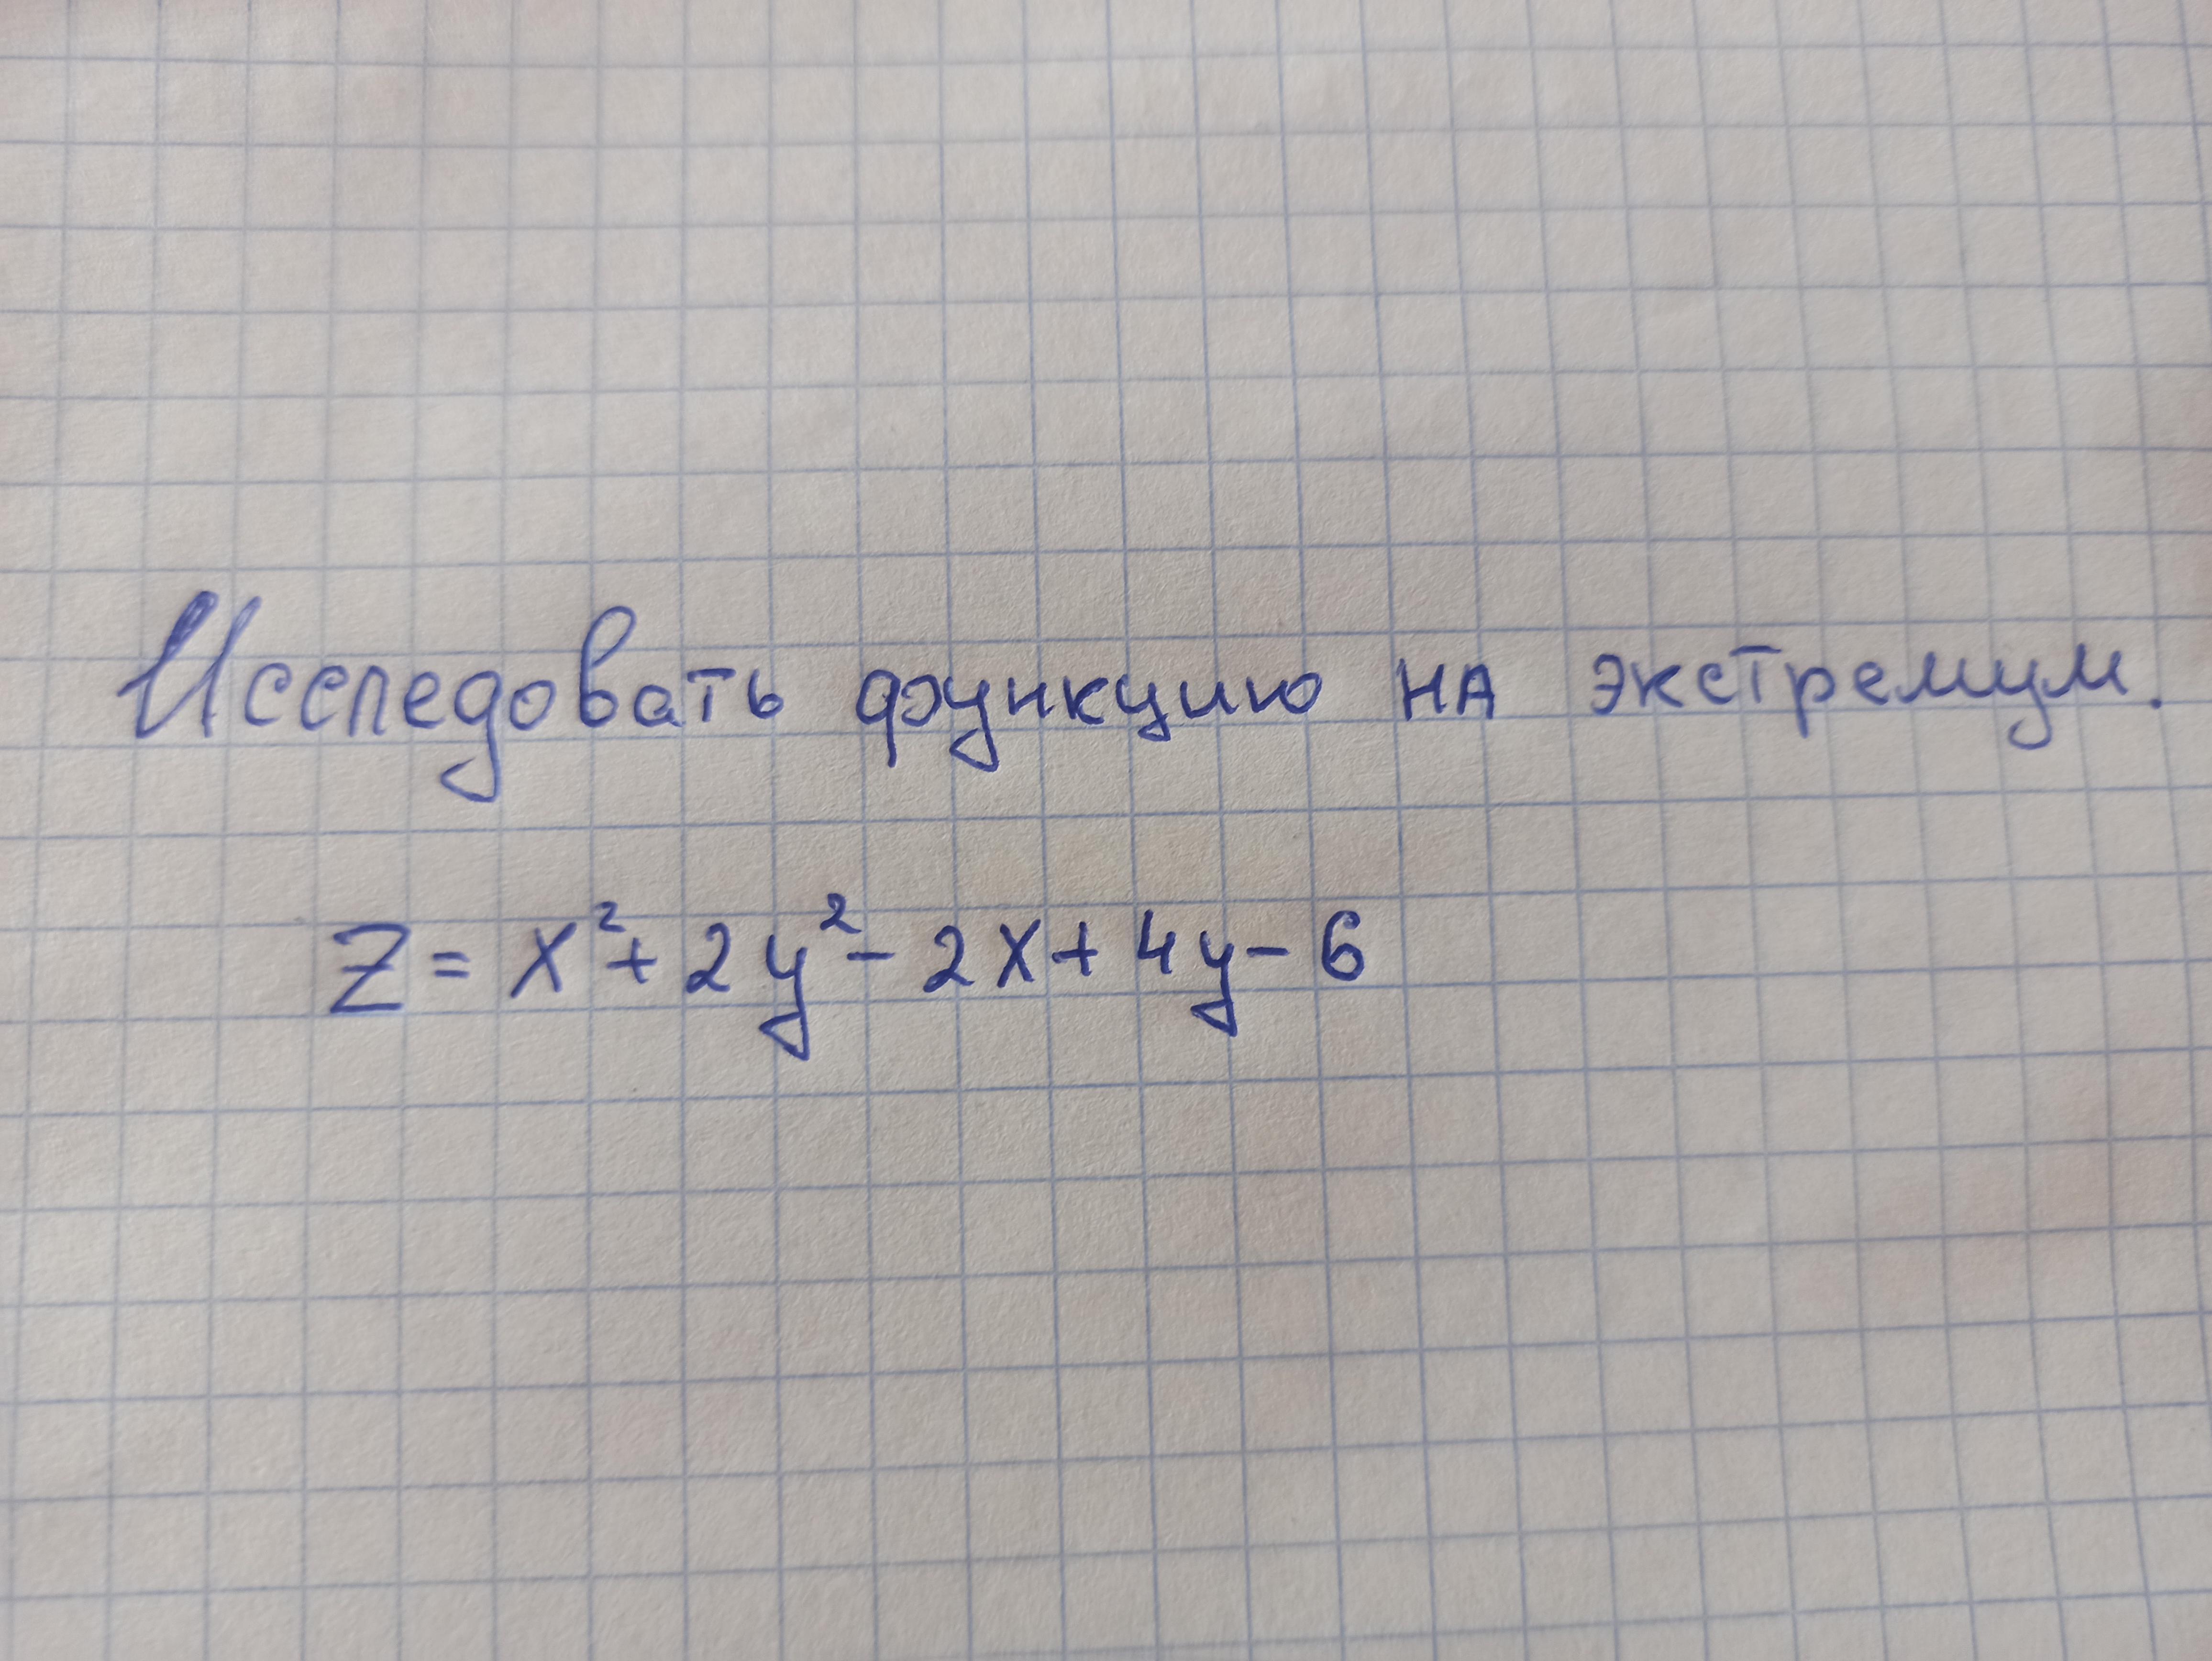 Исследовать функцию на экстремум.
Z = x² + 2y² - 2x + 4y - 6